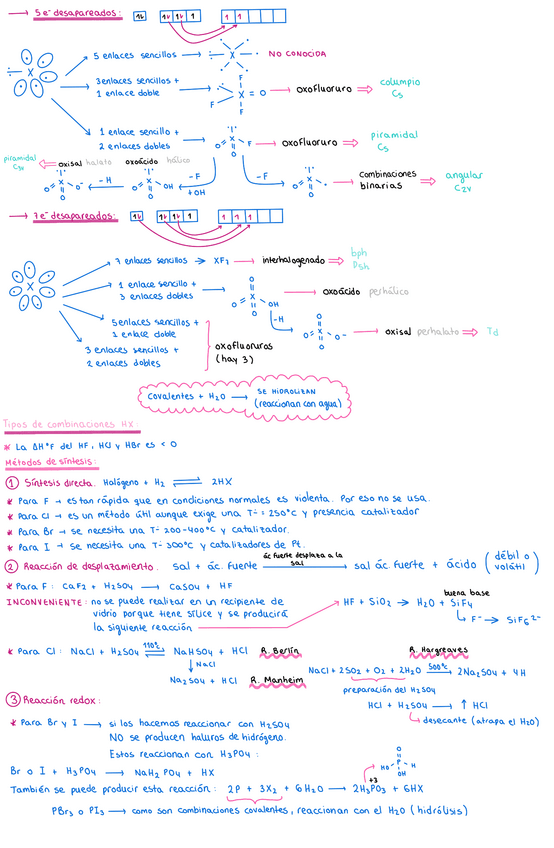 → 5 e⁻ desapareados:
5 enlaces sencillos → NO CONOCIDA
3 enlaces sencillos + 1 enlace doble → oxofluoruro ⇒ columpio Cs
1 enlace sencillo + 2 enlaces dobles → oxofluoruro ⇒ piramidal Cs
piramidal C3v ⇐ oxisal halato oxoácido hálico
-H -F +OH -F → combinaciones binarias ⇒ angular C2v
→ 7 e⁻ desapareados:
7 enlaces sencillos → XF7 → interhalogenado ⇒ bph D5h
1 enlace sencillo + 3 enlaces dobles → oxoácido perhálico
-H → oxisal perhalato ⇒ Td
5 enlaces sencillos + 1 enlace doble
3 enlaces sencillos + 2 enlaces dobles
oxofluoruros (hay 3)
covalentes + H2O → SE HIDROLIZAN (reaccionan con agua)
Tipos de combinaciones HX:
* La ΔH°F del HF, HCl y HBr es < 0
Métodos de síntesis:
① Síntesis directa. Halógeno + H2 ⇌ 2HX
* Para F → es tan rápida que en condiciones normales es violenta. Por eso no se usa.
* Para Cl → es un método útil aunque exige una Tª = 250°C y presencia catalizador
* Para Br → se necesita una Tª 200-400°C y catalizador.
* Para I → se necesita una Tª 300°C y catalizadores de Pt.
② Reacción de desplazamiento. Sal + ác. Fuerte → sal ác. fuerte + ácido (débil o volátil)
ác fuerte desplaza a la sal
* Para F: CaF2 + H2SO4 → CaSO4 + HF
buena base
INCONVENIENTE: no se puede realizar en un recipiente de
vidrio porque tiene sílice y se producirá
la siguiente reacción → HF + SiO2 → H2O + SiF4
F⁻ → SiF6²⁻
* Para Cl: NaCl + H2SO4 ⇌ NaHSO4 + HCl R. Berlín
110°C
↓ NaCl
Na2SO4 + HCl R. Manheim
R. Hargreaves
NaCl + 2SO2 + O2 + 2H2O → 2Na2SO4 + 4H
500°C
preparación del H2SO4
HCl + H2SO4 → ↑ HCl
desecante (atrapa el H2O)
③ Reacción redox:
* Para Br y I → si los hacemos reaccionar con H2SO4
NO se producen haluros de hidrógeno.
Estos reaccionan con H3PO4:
Br o I + H3PO4 → NaH2PO4 + HX
También se puede producir esta reacción: 2P + 3X2 + 6H2O → 2H3PO3 + 6HX
+3
PBr3 o PI3 → como son combinaciones covalentes, reaccionan con el H2O (hidrólisis)